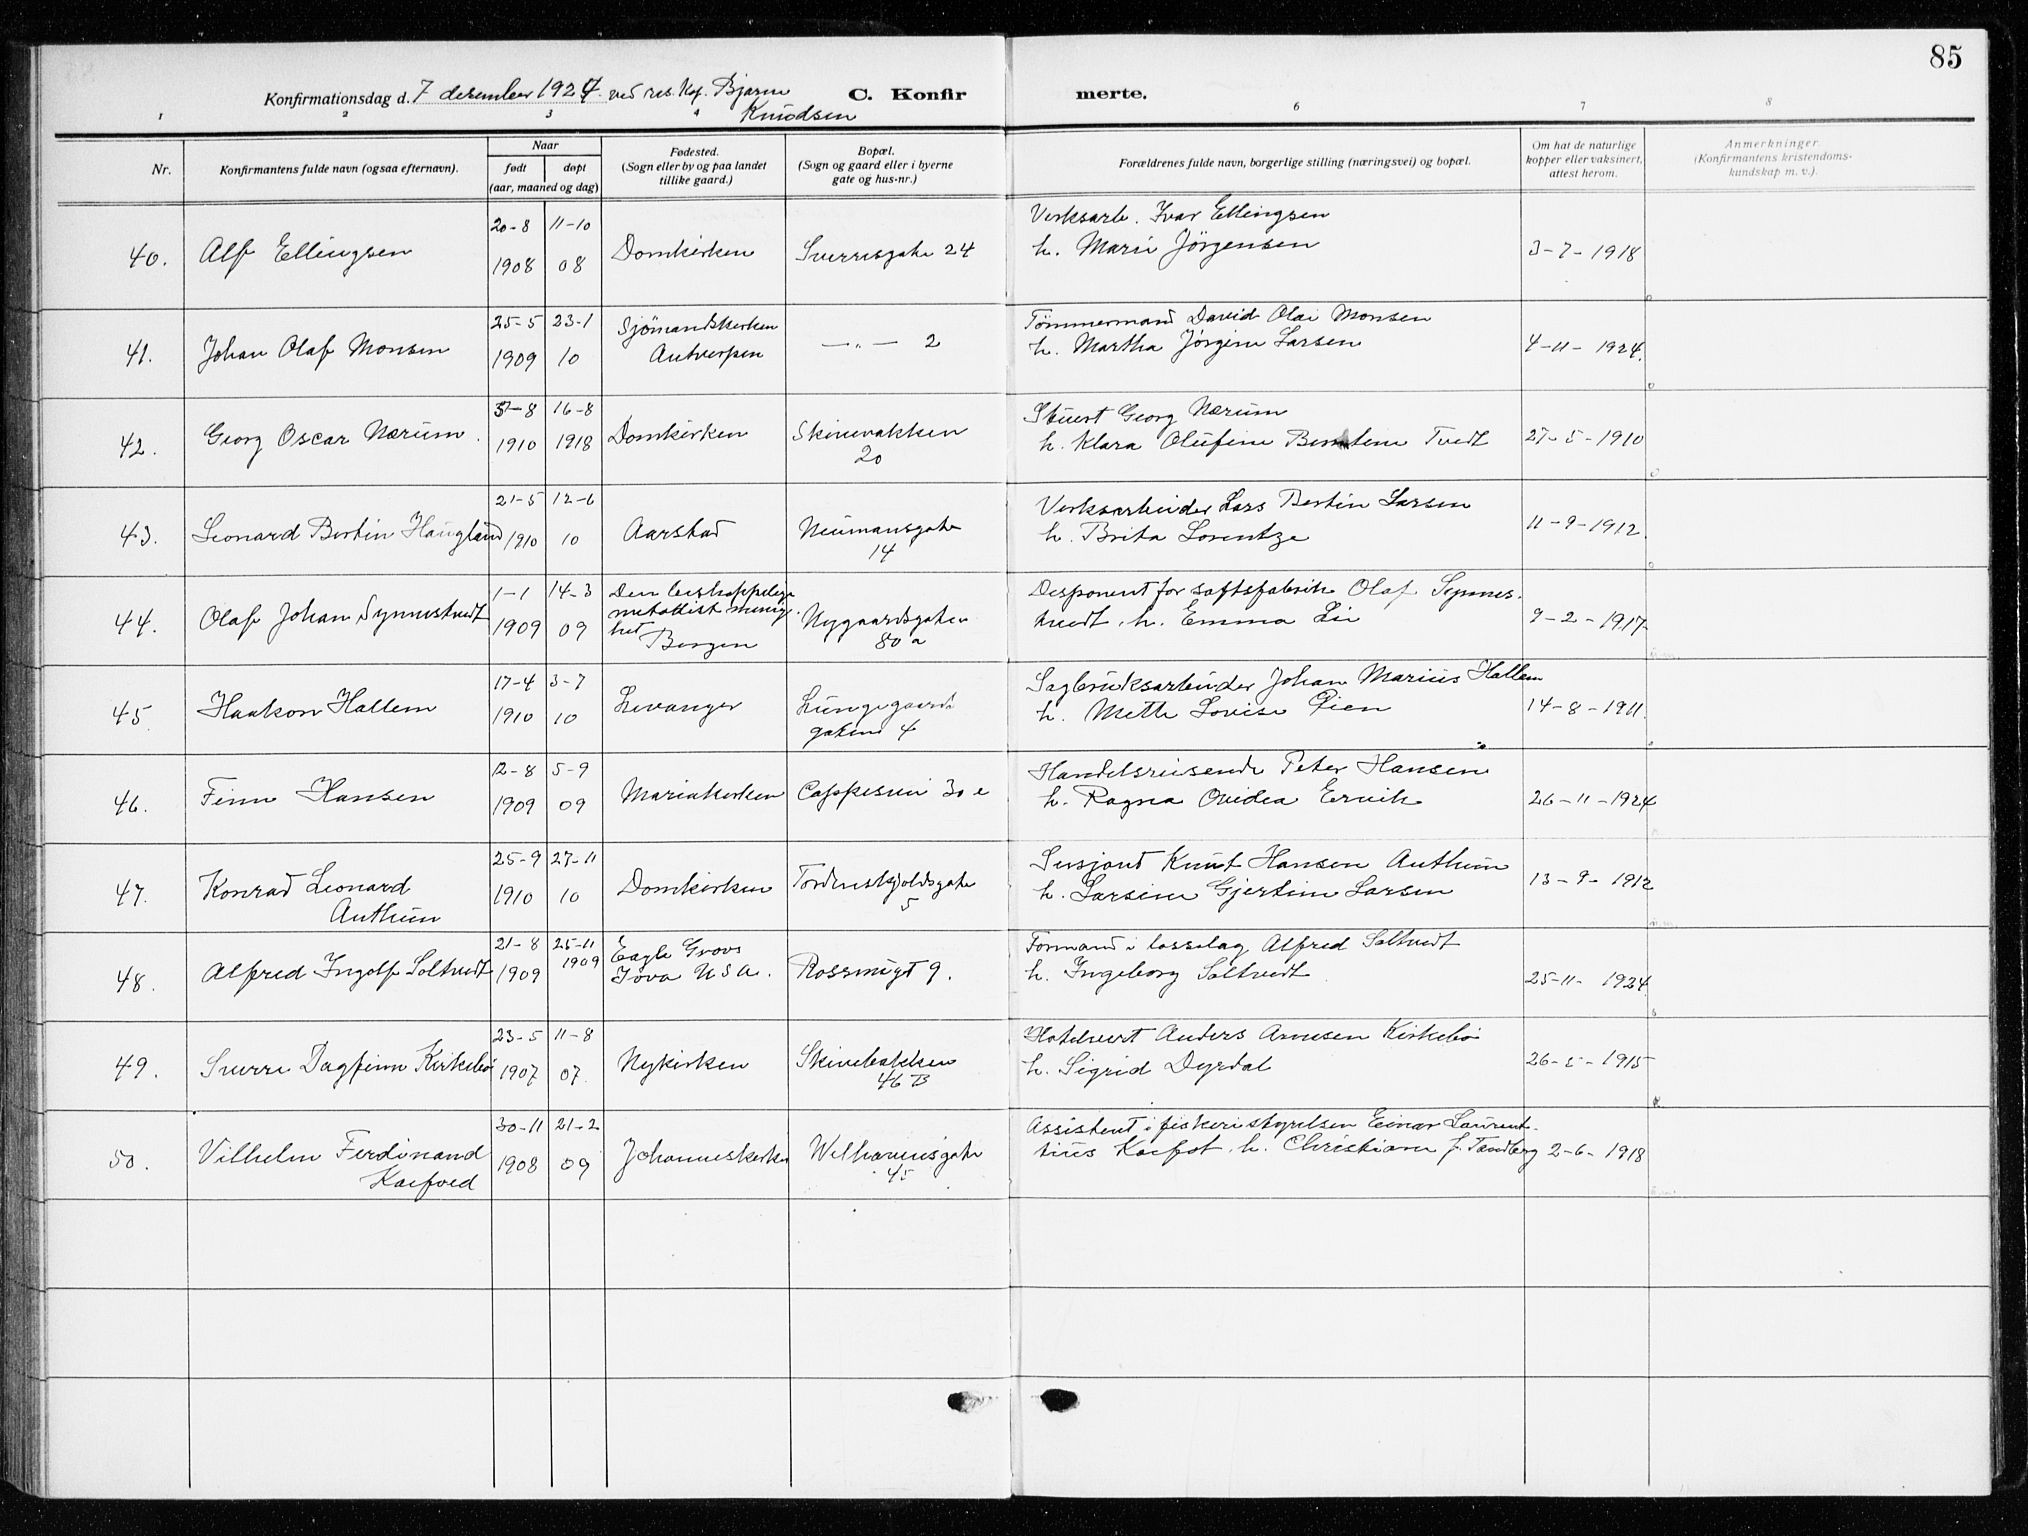 85
Konfirmationsdag d. 7 desember 1924 ved res. Kap. Bjarne Knudsen
C. Konfir merte.
1 2 3 4 6 7 8
Nr.
Konfirmantens fulde navn (ogsaa efternavn).
Naar
født døpt
(aar, maaned og dag)
Fødested.
(Sogn eller by og paa landet
tillike gaard.)
Bopæl.
(Sogn og gaard eller i byerne
gate og hus-nr.)
Forældrenes fulde navn, borgerlige stilling (næringsvei) og bopæl.
Om hat de naturlige
kopper eller vaksinert,
attest herom.
Anmerkninger.
(Konfirmantens kristendoms-
kundskap m. v.).
40. Alf Ellingsen 20-8 1908 11-10 08 Domkirken Sverresgate 24
Verksarb. Ivar Ellingsen
h. Marie Jörgensen 3-7-1918
41. Johan Olaf Monsen 25-5 1909 23-1 10 Sjömandskirken
Antverpen — " — 2
Tömmermand David Olai Monsen
h. Martha Jörgine Larsen 4-11-1924.
42. Georg Oscar Nærum. 31-8 1910 16-8 1918 Domkirken Skivebakken
20
Stuert Georg Nærum
h. Klara Olufine Tvedt 27-5-1910
43. Leonard Bertin Haugland 21-5 1910 12-6 10 Aarstad Neumansgate
14
Verksarbeider Lars Bertin Larsen
h. Brita Lorentze 11-9-1912.
44. Olaf Johan Synnestvedt 1-1 1909 14-3 09 Den biskoppelige
metodist menig-
het
Bergen
Nygaardsgaten
80 a
Disponent for saftfabrik Olaf Synnes-
tvedt, h. Emma Lie 9-2-1917
45. Haakon Hallem 17-4 1910 3-7 10 Levanger Lungegaards
gaten 4
Sagbruksarbeider Johan Marius Hallem
h. Mette Lovise Öien 14-8-1911.
46. Finn Hansen 12-8 1909 5-9 09 Mariakirken Cappesvei 30 e
Handelsreisende Peter Hansen
h. Ragna Ovidea Ervik 26-11-1924
47. Konrad Leonard
Anthun 25-9 1910 27-11 10 Domkirken Tordenskjoldsgate
5
Knut Hansen Anthun
h. Larsine Gjertine Larsen 13-9-1912
48. Alfred Ingolf Soltvedt 21-8 1909 25-11 1909 Eagle Grovs
Iova USA. Rosmugt 9.
Formand i losselag Alfred Soltvedt
h. Ingeborg Soltvedt 25-11-1924
49. Sverre Dagfinn Kirkebö 23-5 1907 11-8 07. Nykirken Skivebakken
46 B
Hotelvert Anders Arnesen Kirkebö
h. Sigrid Dyrdal 26-5-1915
50. Vilhelm Ferdinand
Koefoed 30-11 1908 21-2 09 Johanneskirken Welhavensgate
45
Assistent i fiskeristyrelsen Einar Laurent-
tius Koefot. h. Christiane f. Tandberg 2-6-1918